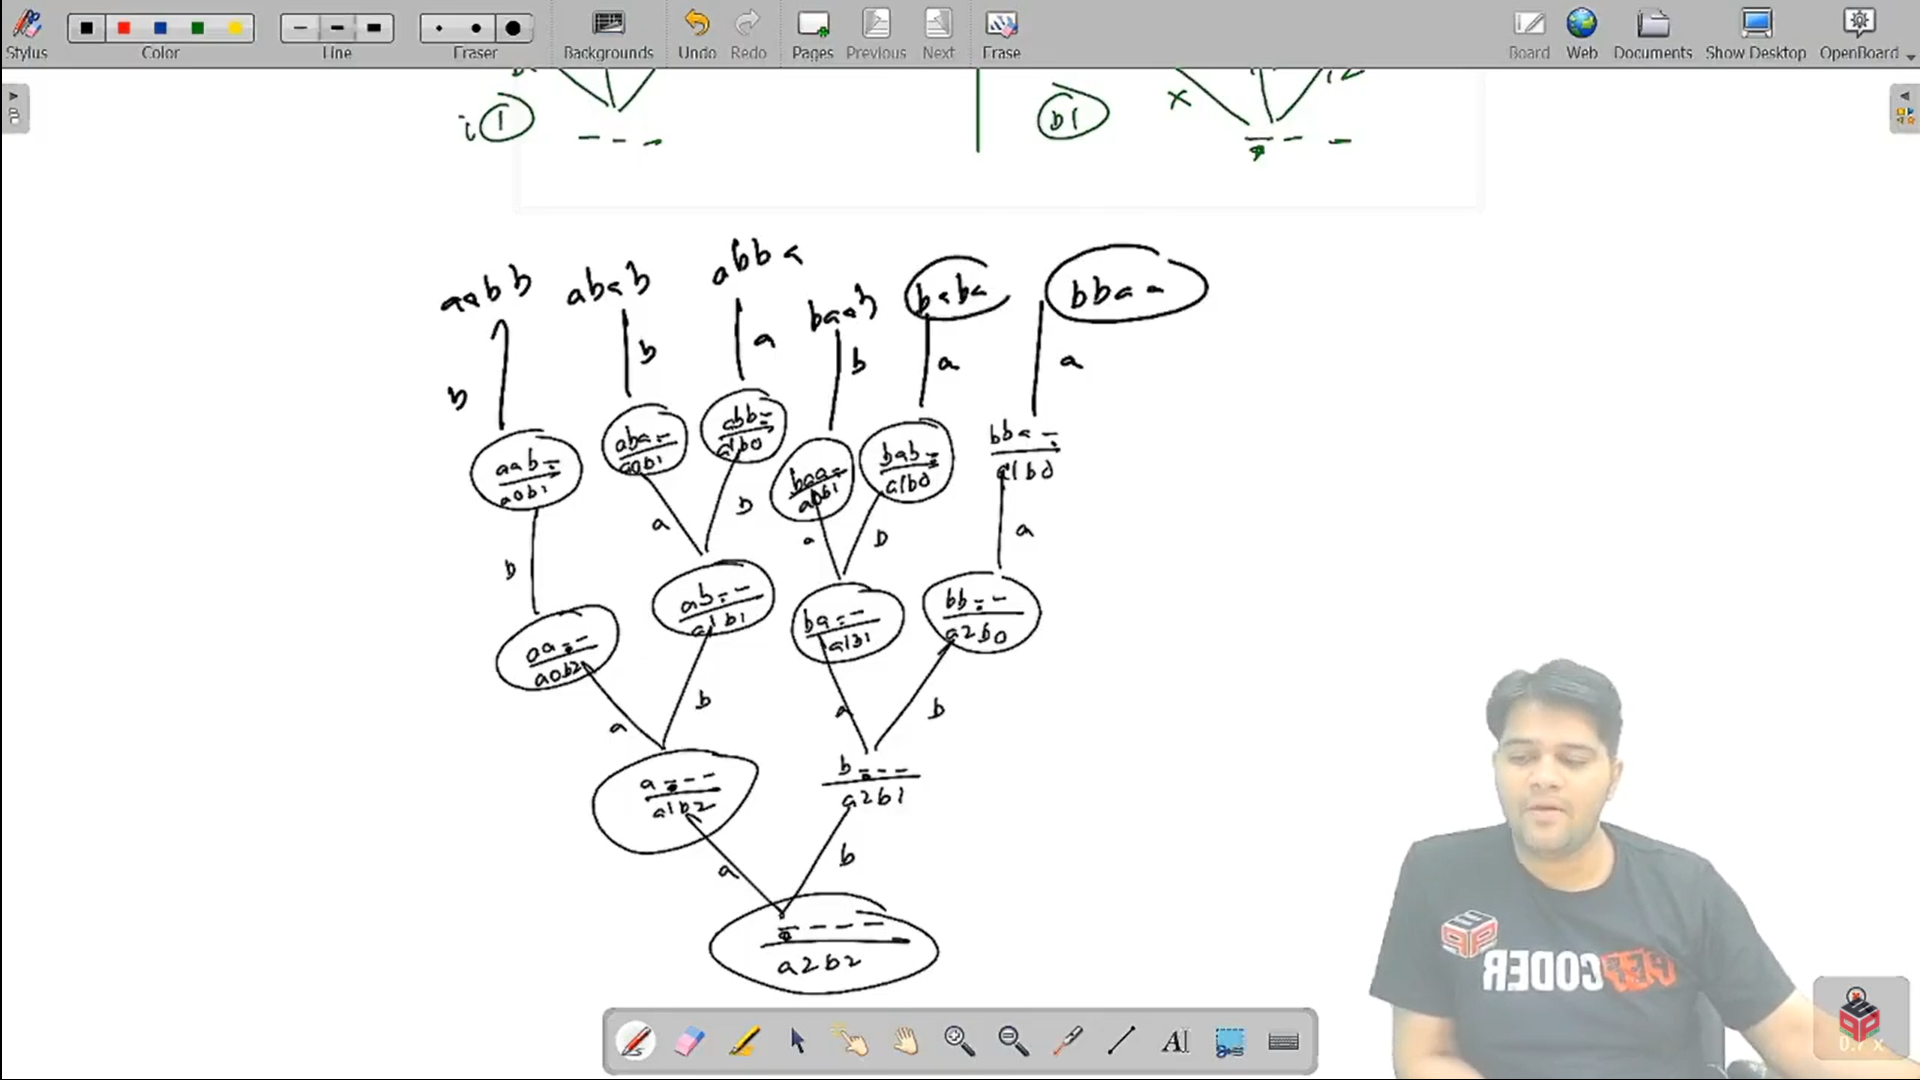 Stylus
Color
Line
Eraser
Backgrounds
Undo
Redo
Pages
Previous
Next
Erase
Board
Web
Documents
Show Desktop
OpenBoard
i 1
b1
x
12
aabb
abab
abba
baab
baba
bbaa
b
b
a
b
a
a
aab_
a0b1
aba_
a0b1
abb_
a1b0
baa_
a0b1
bab_
a1b0
bba_
a1b0
b
a
b
a
b
a
aa_ _
a0b2
ab_ _
a1b1
ba_ _
a1b1
bb_ _
a2b0
a
b
a
b
a_ _ _
a1b2
b_ _ _
a2b1
a
b
_ _ _ _
a2b2
PEPCODER
0.7 x